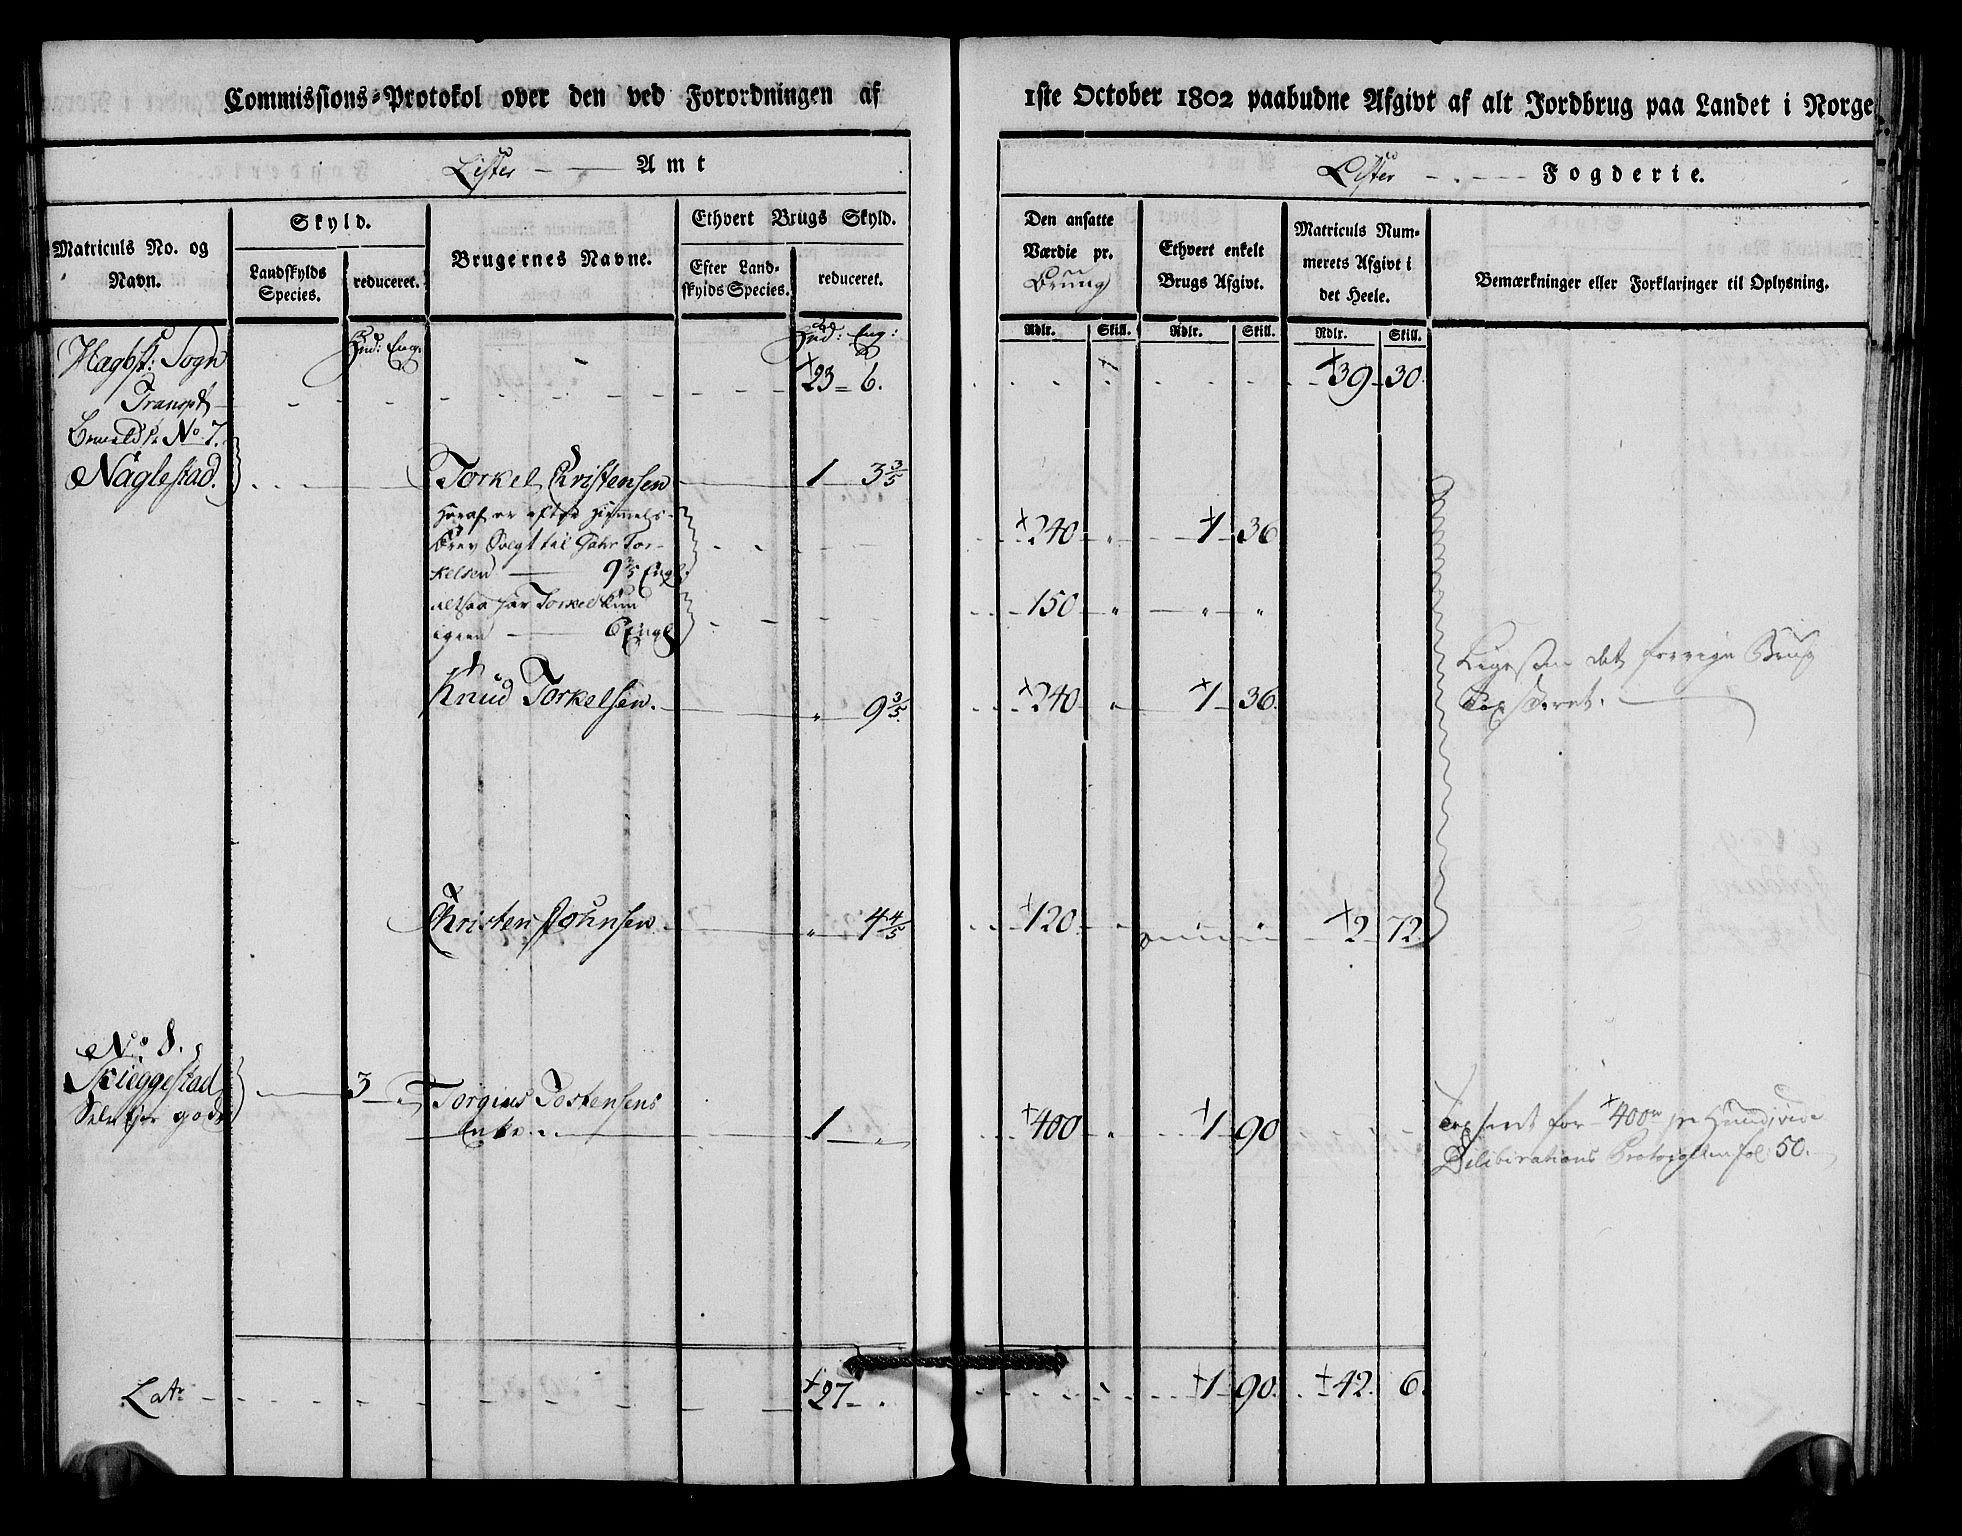 Commissions-Protokol over den ved Forordningen af
1ste October 1802 paabudne Afgivt af alt Jordbrug paa Landet i Norge
Lister Amt
Lister Fogderie.
Matriculs No. og Navn.
Skyld.
Landskylds Species.
reduceret.
Brugernes Navne.
Ethvert Brugs Skyld.
Efter Landskylds Species.
reduceret.
Den ansatte Værdie pr.
Ethvert enkelt Brugs Afgivt.
Matriculs Nummerets Afgivt i det Heele.
Bemærkninger eller Forklaringer til Oplysning.
Rdlr. Skill. Rdlr. Skill. Rdlr. Skill.
Hud: Eng: Hud: Eng:
Hægbst: Sogn
Transpt 23 6. 39 30.
No 7.
Näglestad. Torkel Christensen 1 3 3/5
Heraf er efter
Brev Solgt til Tor-
kelsen 9 3/5 Engl 240 1 36
altsaa har Torkel kun
igien 6 Engl 150
Knud Torkelsen. 9 3/5 240 1 36.
Ligesom det forrige Brug
taxseret.
Christen Johnsen 4 4/5 120 2 72.
No 8.
Skieggestad 3 Torgius Jostensens
Enke 1 400 1 90
Taxseret for 400 pr
Deliberations Protocollen fol: 50.
Latr 27 1 90. 42. 6.